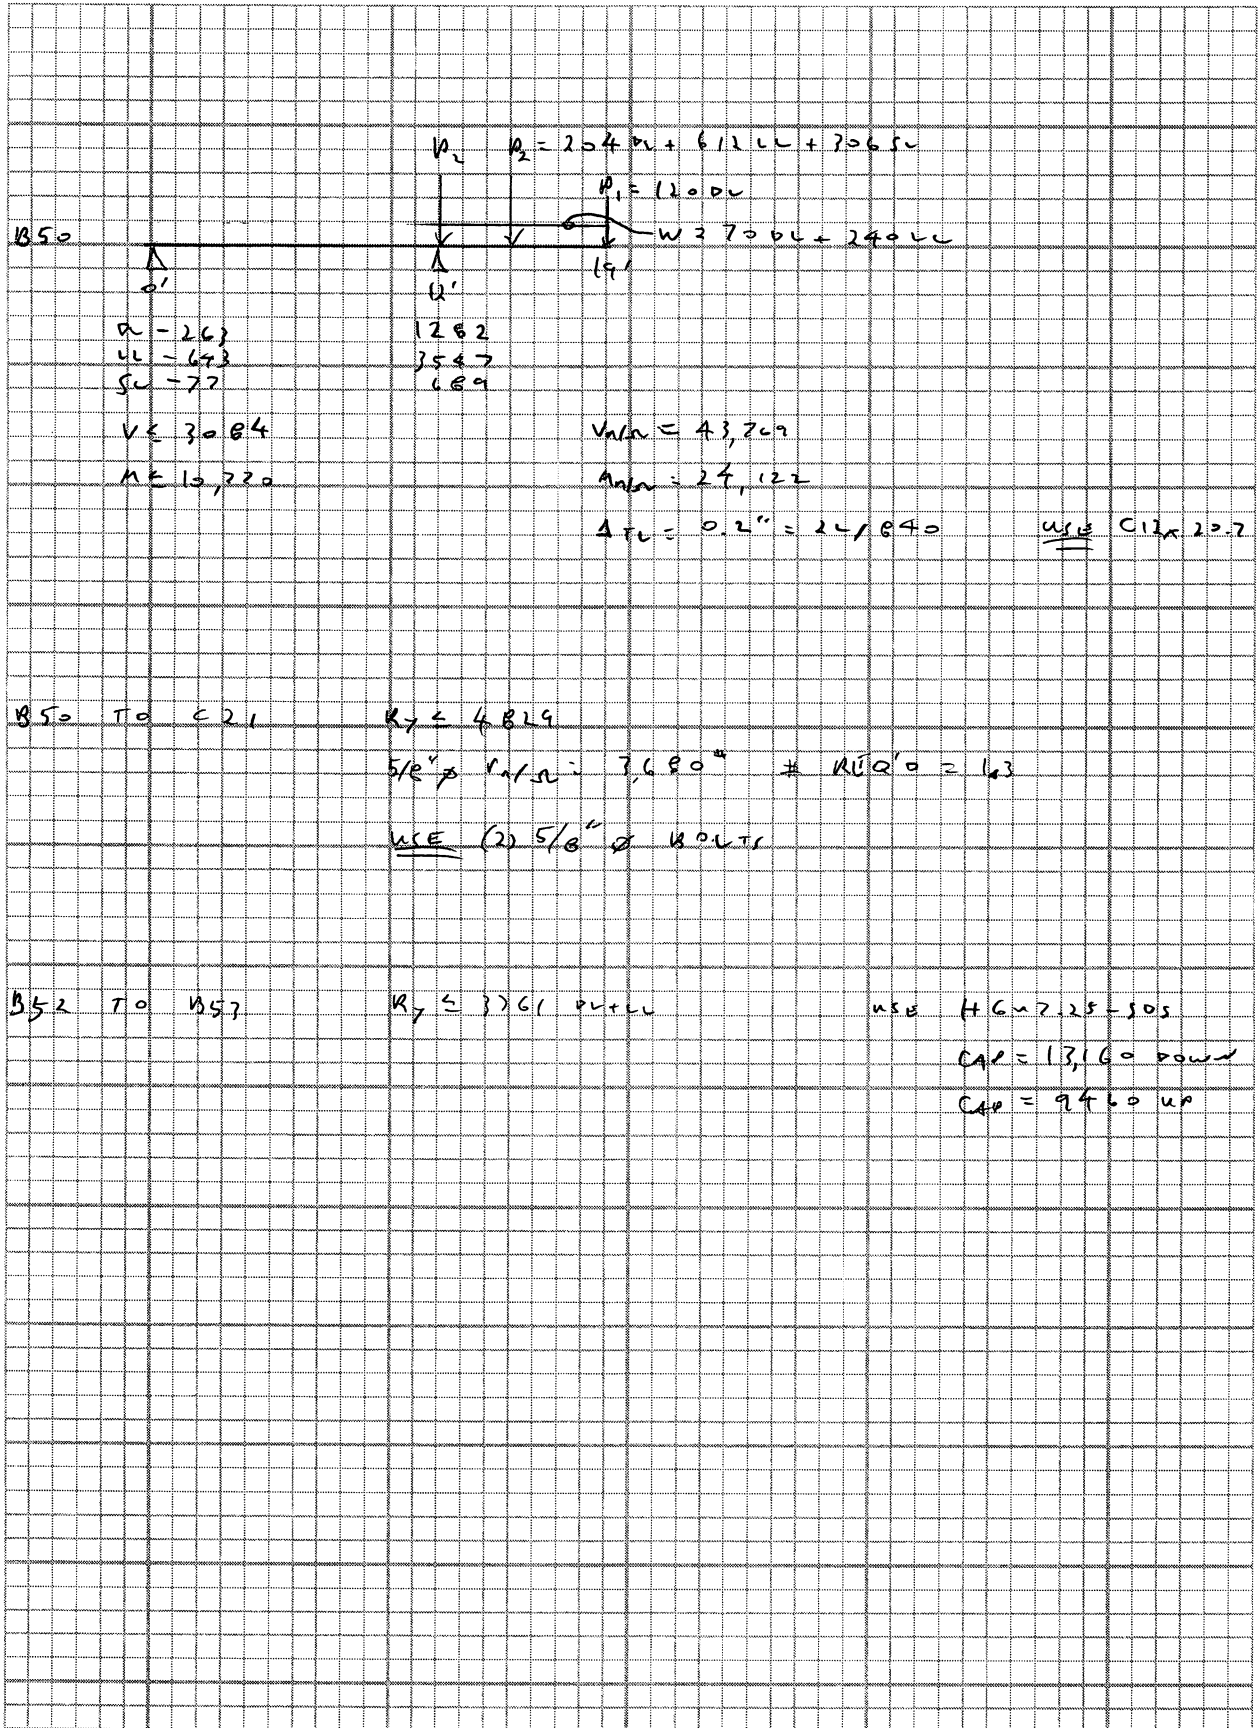 P₂ P₂ = 204 DL + 612 LL + 306 SL
P₁ = 120 DL
B50 W = 70 DL + 240 LL
0' 12' 19'
DL -263 1282
LL -643 3547
SL -77 689
V ≤ 3084 Vn/Ω = 43,769
M ≤ 10,220 Mn/Ω = 24,122
ΔTL = 0.2" = 2L/840 USE C12x20.7
B50 TO C21 Ry ≤ 4829
5/8" ø rn/Ω = 3,680# # REQ'D = 1.3
USE (2) 5/8" ø BOLTS
B52 TO B53 Ry ≤ 3761 DL+LL USE HGU7.25-SDS
CAP = 13,160 DOWN
CAP = 9460 UP